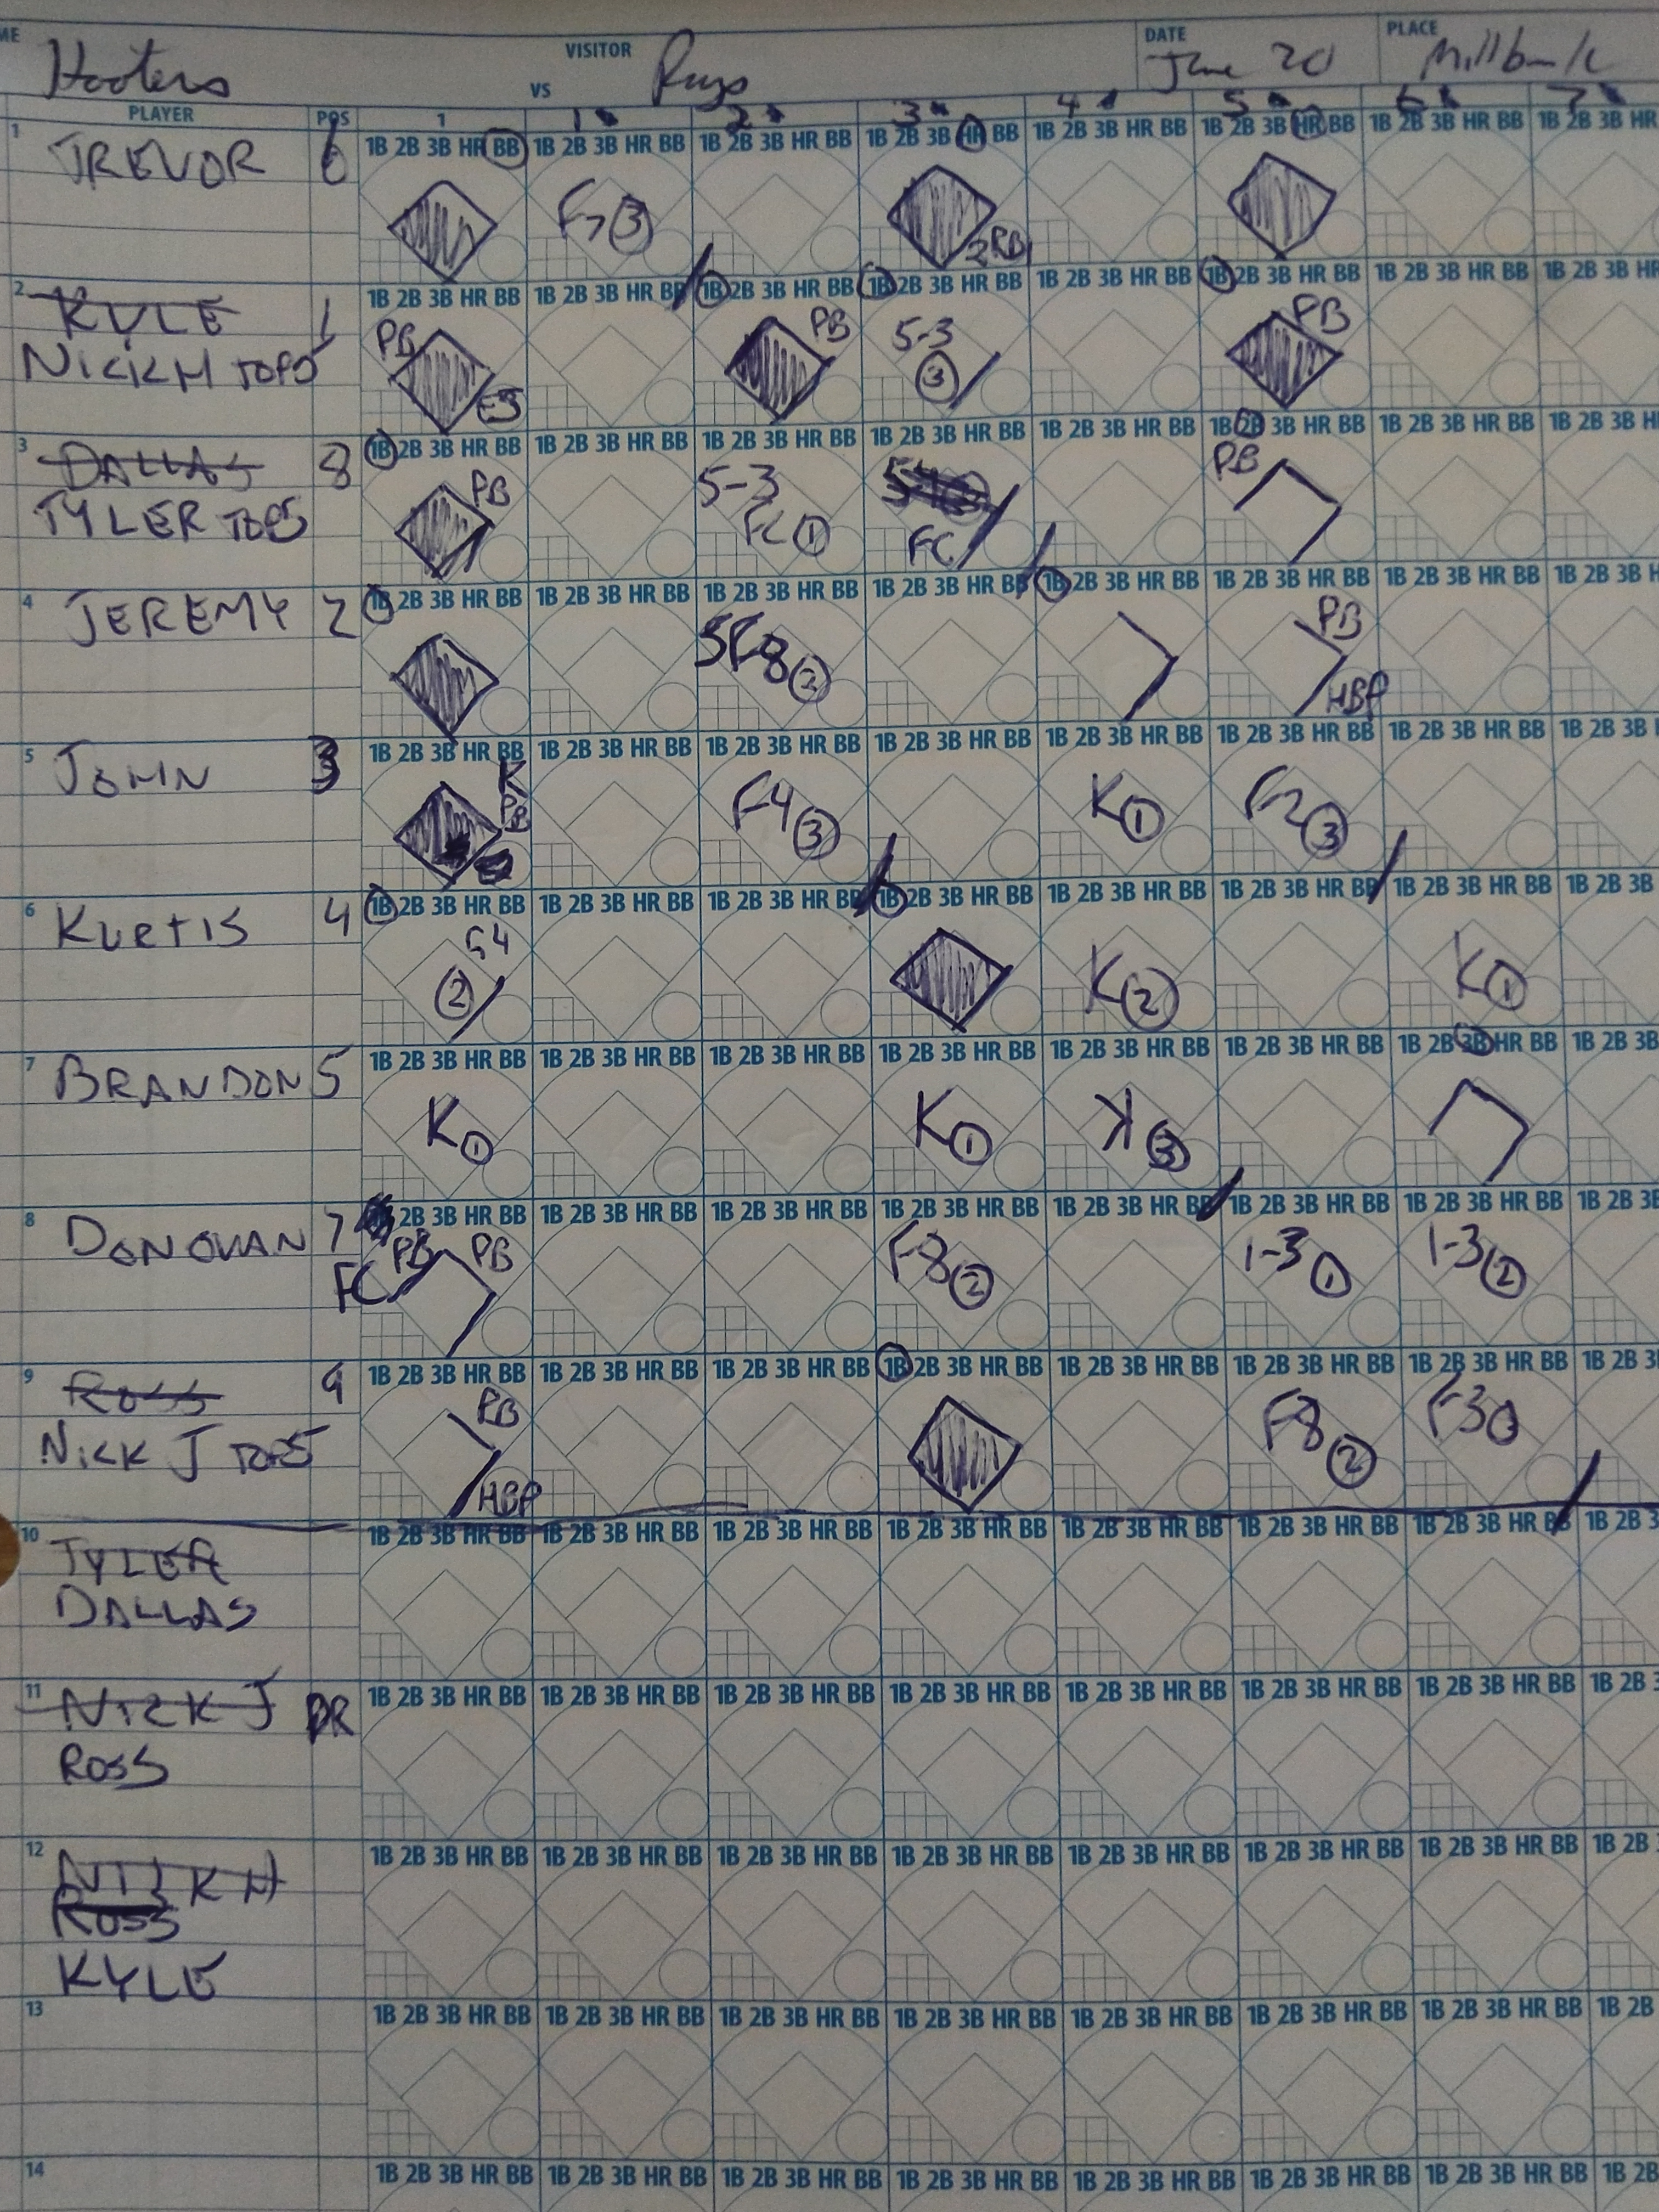 ME VISITOR DATE PLACE
Hooters VS Rays June 20 Millbank
PLAYER POS 1 1 2 3 4 5 6 7
1 TREVOR 6 1B 2B 3B HR BB 1B 2B 3B HR BB 1B 2B 3B HR BB 1B 2B 3B HR BB 1B 2B 3B HR BB 1B 2B 3B HR BB 1B 2B 3B HR BB 1B 2B 3B HR
F7 3 2RBI
2 KYLE 1 1B 2B 3B HR BB 1B 2B 3B HR BB 1B 2B 3B HR BB 1B 2B 3B HR BB 1B 2B 3B HR BB 1B 2B 3B HR BB 1B 2B 3B HR BB 1B 2B 3B HR
NICK H TOP5 PB E5 PB 5-3 3 PB
3 DALLAS 8 1B 2B 3B HR BB 1B 2B 3B HR BB 1B 2B 3B HR BB 1B 2B 3B HR BB 1B 2B 3B HR BB 1B 2B 3B HR BB 1B 2B 3B HR BB 1B 2B 3B H
TYLER TOP5 PB 5-3 FC 1 FC PB
4 JEREMY 2 1B 2B 3B HR BB 1B 2B 3B HR BB 1B 2B 3B HR BB 1B 2B 3B HR BB 1B 2B 3B HR BB 1B 2B 3B HR BB 1B 2B 3B HR BB 1B 2B 3B H
SF8 2 PB HBP
5 JOHN 3 1B 2B 3B HR BB 1B 2B 3B HR BB 1B 2B 3B HR BB 1B 2B 3B HR BB 1B 2B 3B HR BB 1B 2B 3B HR BB 1B 2B 3B HR BB 1B 2B 3B
K PB F4 3 K 1 F2 3
6 KURTIS 4 1B 2B 3B HR BB 1B 2B 3B HR BB 1B 2B 3B HR BB 1B 2B 3B HR BB 1B 2B 3B HR BB 1B 2B 3B HR BB 1B 2B 3B HR BB 1B 2B 3B
G4 2 K 2 K 1
7 BRANDON 5 1B 2B 3B HR BB 1B 2B 3B HR BB 1B 2B 3B HR BB 1B 2B 3B HR BB 1B 2B 3B HR BB 1B 2B 3B HR BB 1B 2B 3B HR BB 1B 2B 3B
K 1 K 1 K 3
8 DONOVAN 7 2B 3B HR BB 1B 2B 3B HR BB 1B 2B 3B HR BB 1B 2B 3B HR BB 1B 2B 3B HR BB 1B 2B 3B HR BB 1B 2B 3B HR BB 1B 2B 3B
FC PB PB F8 2 1-3 1 1-3 2
9 ROSS 9 1B 2B 3B HR BB 1B 2B 3B HR BB 1B 2B 3B HR BB 1B 2B 3B HR BB 1B 2B 3B HR BB 1B 2B 3B HR BB 1B 2B 3B HR BB 1B 2B 3
NICK J TOP5 PB HBP F8 2 F3
10 TYLER 1B 2B 3B HR BB 1B 2B 3B HR BB 1B 2B 3B HR BB 1B 2B 3B HR BB 1B 2B 3B HR BB 1B 2B 3B HR BB 1B 2B 3B HR BB 1B 2B 3
DALLAS
11 NICK J 1B 2B 3B HR BB 1B 2B 3B HR BB 1B 2B 3B HR BB 1B 2B 3B HR BB 1B 2B 3B HR BB 1B 2B 3B HR BB 1B 2B 3B HR BB 1B 2B
ROSS
12 NICK H 1B 2B 3B HR BB 1B 2B 3B HR BB 1B 2B 3B HR BB 1B 2B 3B HR BB 1B 2B 3B HR BB 1B 2B 3B HR BB 1B 2B 3B HR BB 1B 2B
ROSS
KYLE
13 1B 2B 3B HR BB 1B 2B 3B HR BB 1B 2B 3B HR BB 1B 2B 3B HR BB 1B 2B 3B HR BB 1B 2B 3B HR BB 1B 2B 3B HR BB 1B 2B
14 1B 2B 3B HR BB 1B 2B 3B HR BB 1B 2B 3B HR BB 1B 2B 3B HR BB 1B 2B 3B HR BB 1B 2B 3B HR BB 1B 2B 3B HR BB 1B 2B